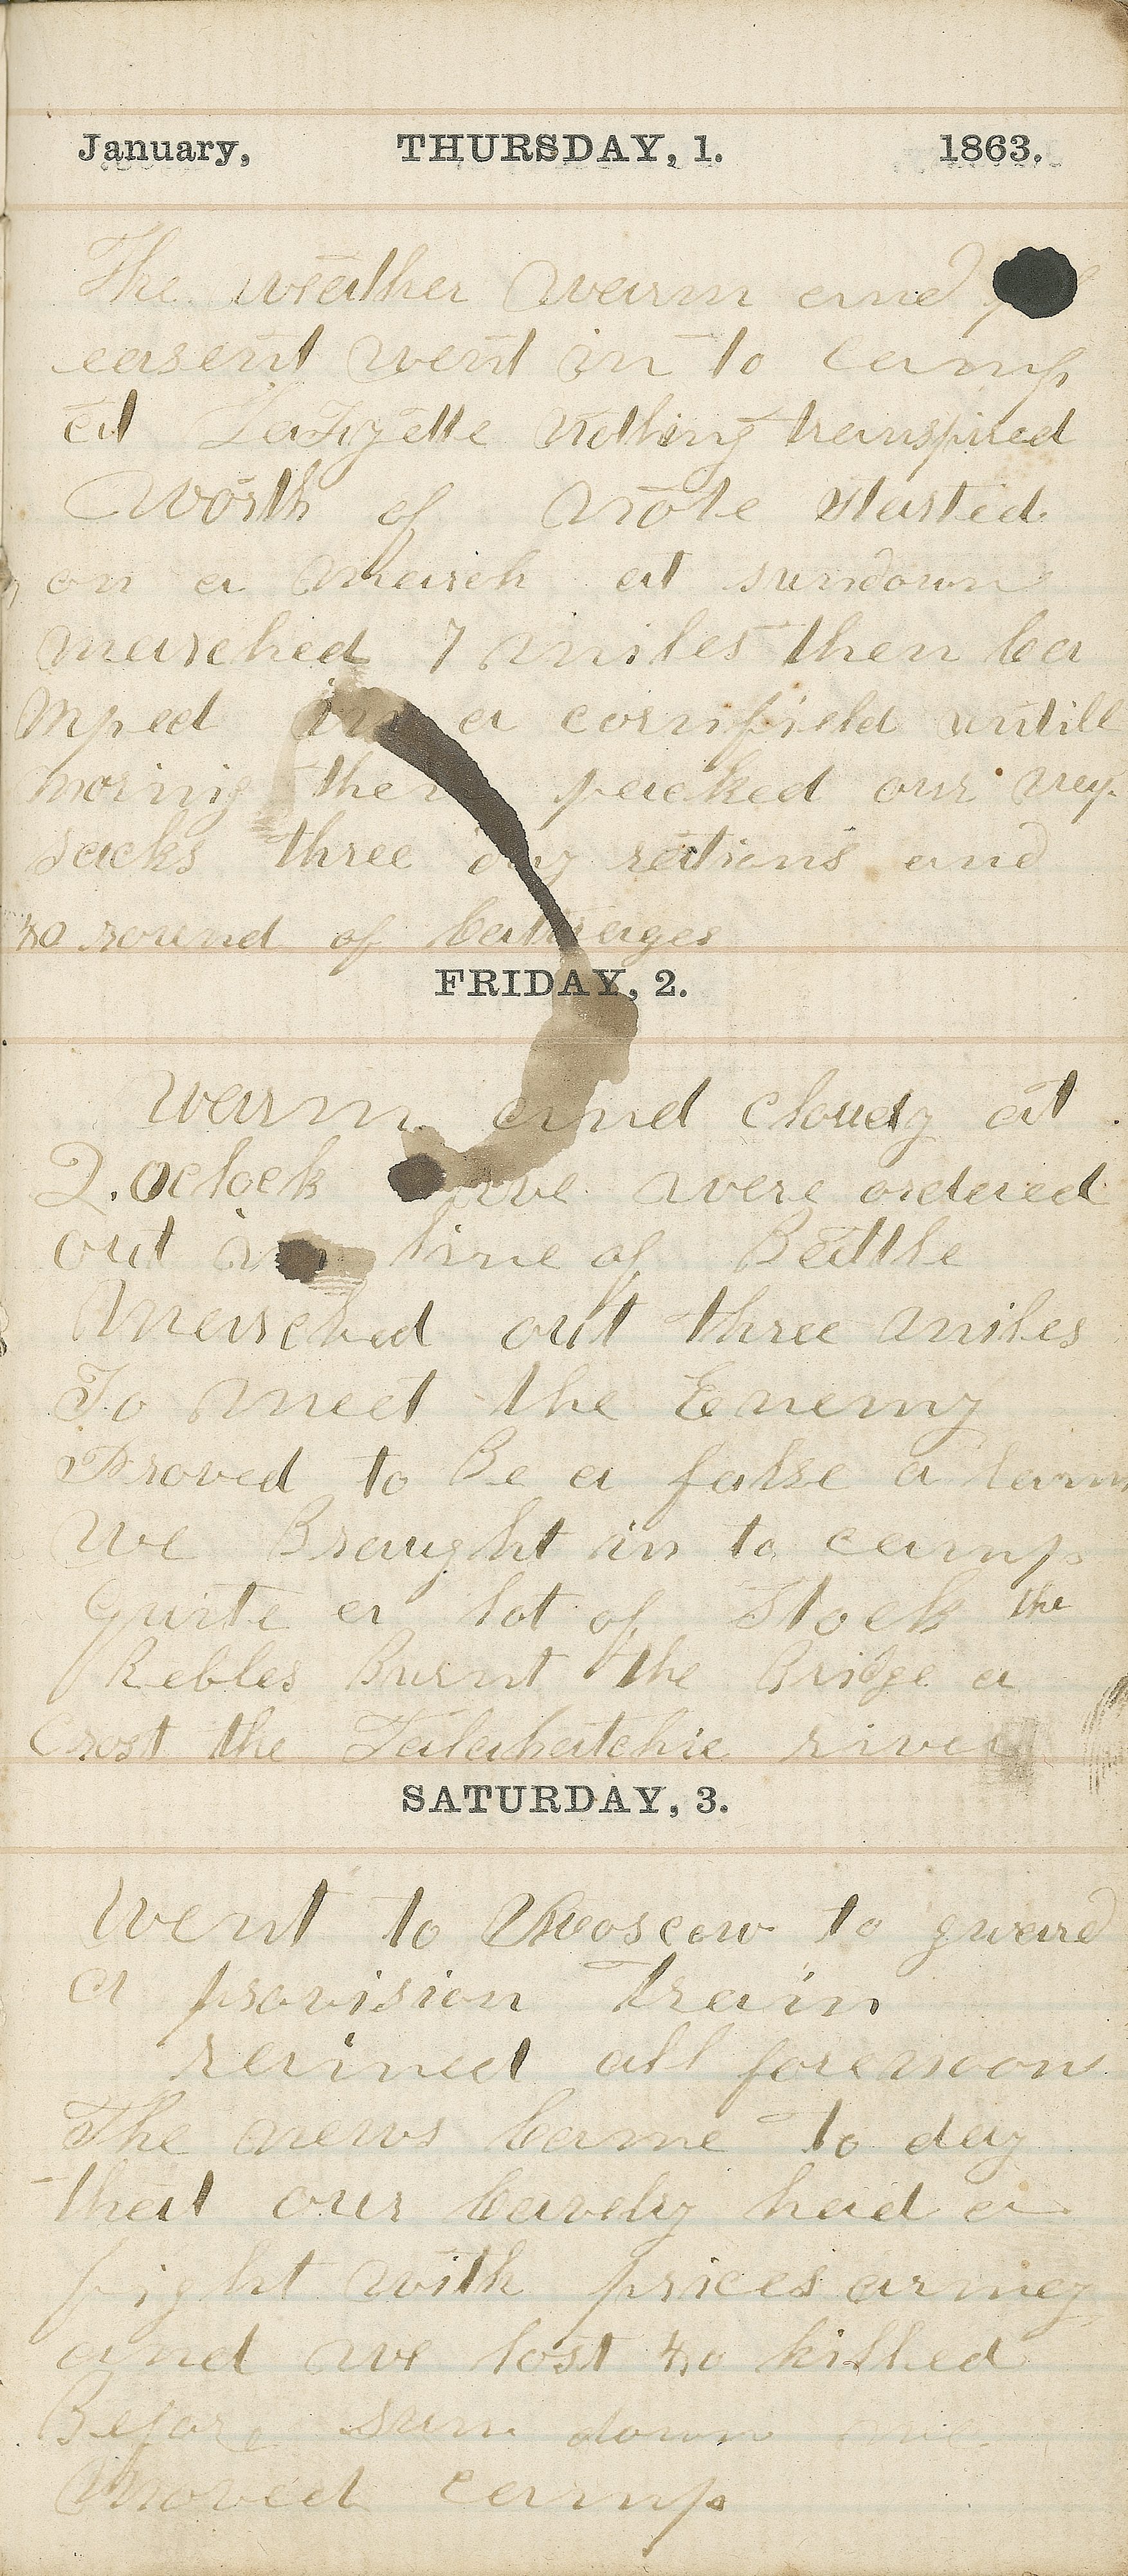 January, THURSDAY, 1. 1863.
The weather warm and
easent went in to camp
at LaFayette nothing transpired
worth of note started
on a march at sundown
marched 7 miles then ca
mped in a cornfield untill
mornig then packed our nep
sacks three day rations and
40 round of catrages
FRIDAY, 2.
Warm and cloudy at
2. oclock we were ordered
out in line of Battle
Marched out three miles
To meet the Enemy
Proved to Be a false a larm
We Braught in to camp
Quite a lot of Stock the
Rebles Burnt the Bridge a
Crost the Talahatchie river
SATURDAY, 3.
Went to Moscow to guard
a provision Train
rained all forenoon
The news came To day
that our cavelry had a
fight with prices armey
and we lost 40 killed
Before sun down we
Moved camp